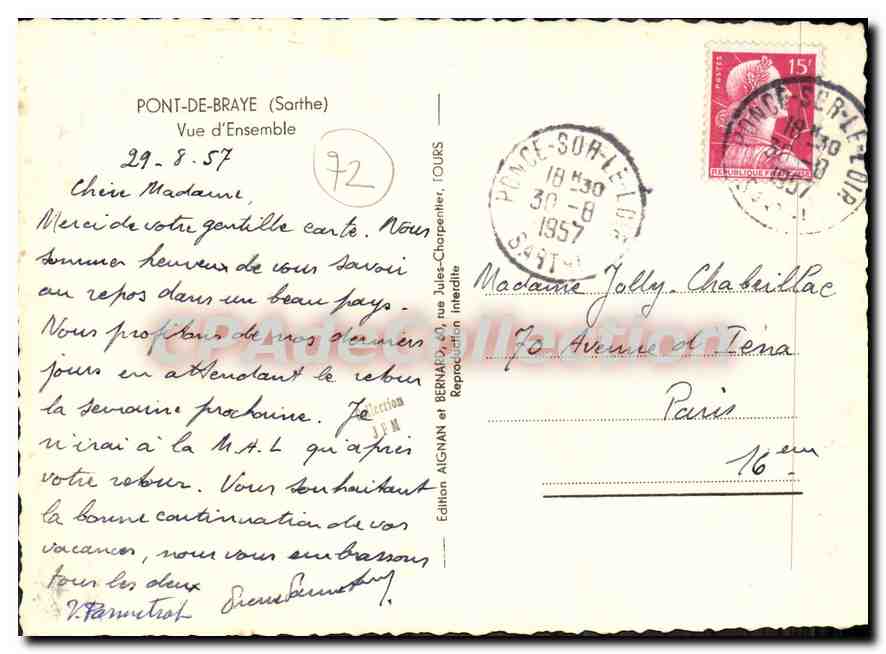 PONT-DE-BRAYE (Sarthe)
Vue d'Ensemble
29-8-57
72
Chère Madame,
Merci de votre gentille carte. Nous
sommes heureux de vous savoir
au repos dans un beau pays.
Nous profitons de nos derniers
jours en attendant le retour
la semaine prochaine. Je
n'irai à la M.A.L qu'après
votre retour. Vous souhaitant
la bonne continuation de vos
vacances, nous vous embrassons
tous les deux
Edition AIGNAN et BERNARD, 60, rue Jules-Charpentier, TOURS
Reproduction Interdite
Collection
JPM
CPAdeCollection
PONCE-SUR-LE-LOIR
18 H30
30-8
1957
SARTHE
POSTES
15F
REPUBLIQUE FRANÇAISE
PONCE-SUR-LE-LOIR
18 H30
30-8
1957
Madame Jolly-Chabeillac
70 Avenue d'Iéna
Paris
16em